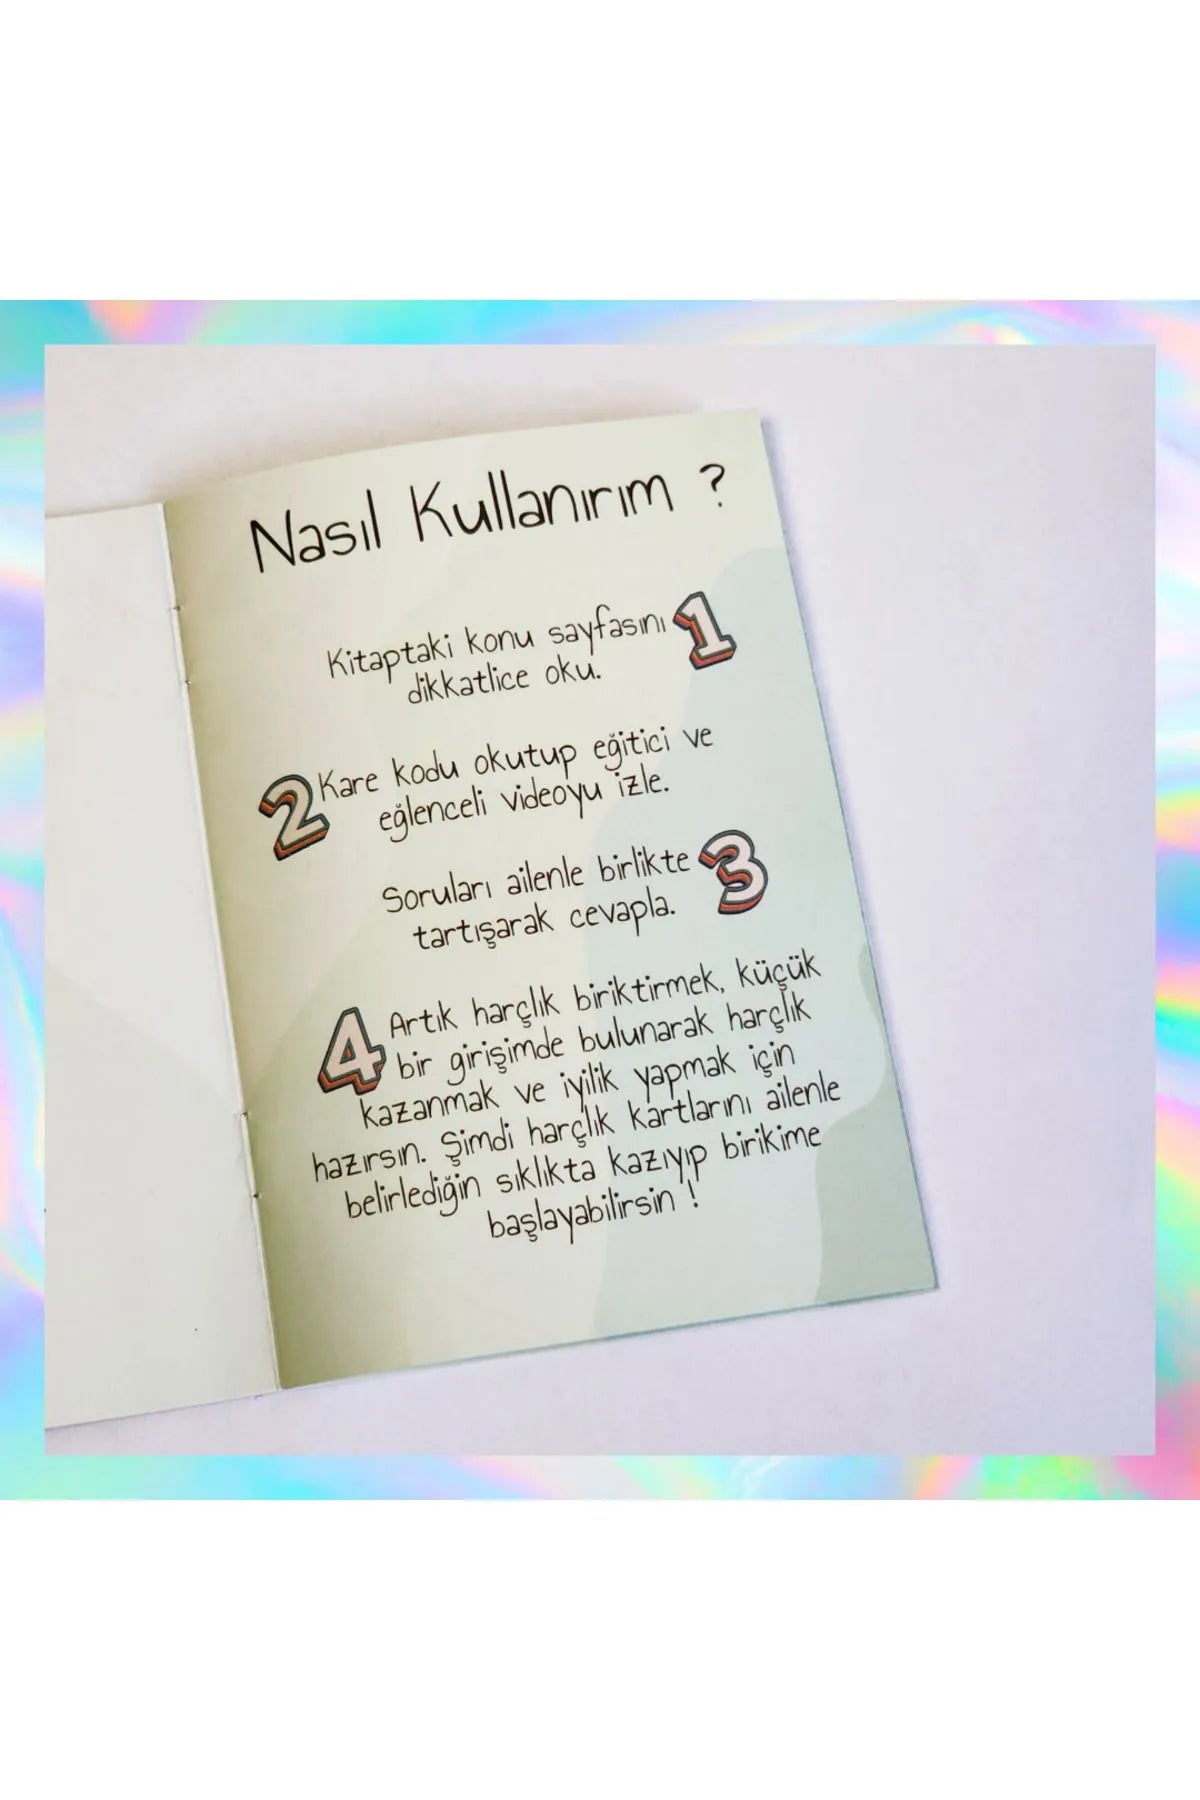 Nasıl Kullanırım ?
1
Kitaptaki konu sayfasını
dikkatlice oku.
2
Kare kodu okutup eğitici ve
eğlenceli videoyu izle.
3
Soruları ailenle birlikte
tartışarak cevapla.
4
Artık harçlık biriktirmek, küçük
bir girişimde bulunarak harçlık
kazanmak ve iyilik yapmak için
hazırsın. Şimdi harçlık kartlarını ailenle
belirlediğin sıklıkta kazıyıp birikime
başlayabilirsin !